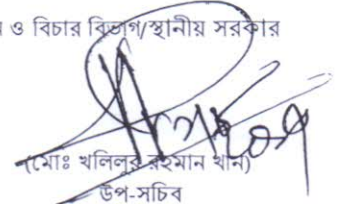 ও বিচার বিভাগ/স্থানীয় সরকার
(মোঃ খলিলুর রহমান খান)
উপ-সচিব